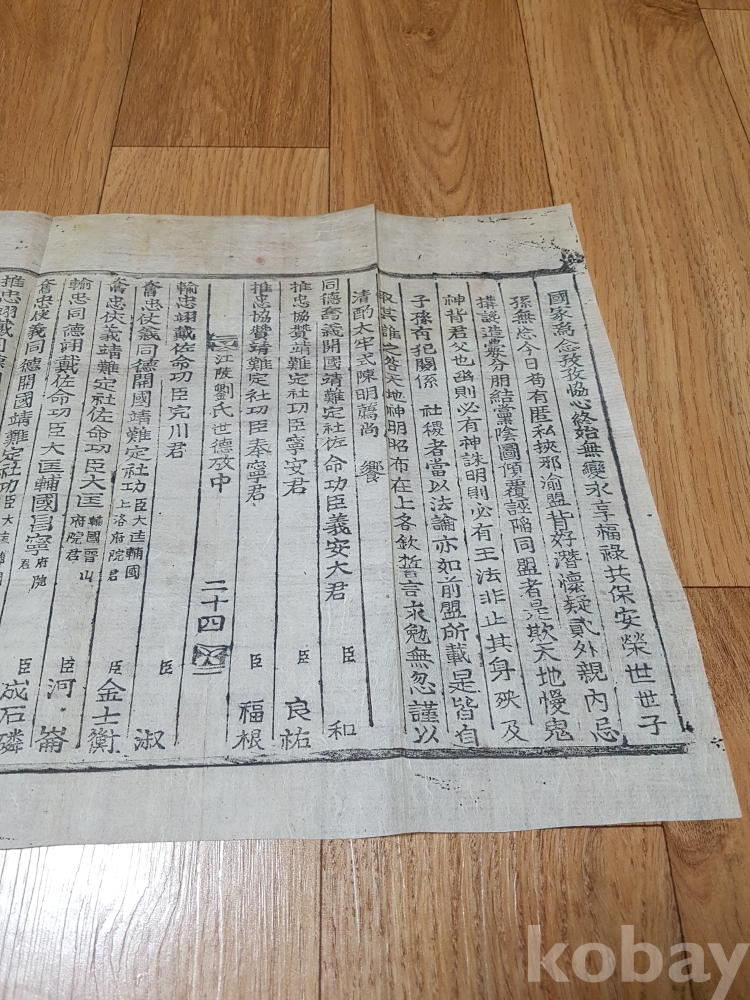 國家爲念孜孜協心終始無變永享福祿共保安榮世世子
孫無忘今日苟有匿私挾邪渝盟背好潛懷疑貳外親內忌
搆說造釁分朋結黨陰圖傾覆誣陷同盟者是欺天地慢鬼
神背君父也幽則必有神誅明則必有王法非止其身殃及
子孫有犯關係 社稷者當以法論亦如前盟所載是皆自
取其誰之咎天地神明昭布在上各欽誓言永勉無忽謹以
清酌太牢式陳明薦尚 饗
同德奮義開國靖難定社佐命功臣義安大君 臣 和
推忠協贊靖難定社功臣寧安君 臣 良祐
推忠協贊靖難定社功臣奉寧君 臣 福根
江陵劉氏世德攷中 二十四
輸忠翊戴佐命功臣完川君 臣 淑
奮忠仗義同德開國靖難定社功臣大匡輔國上洛府院君 臣 金士衡
奮忠仗義靖難定社佐命功臣大匡輔國晋山府院君 臣 河崙
輸忠同德翊戴佐命功臣大匡輔國昌寧府院君 臣 成石璘
奮忠仗義同德開國靖難定社功臣大匡輔國
推忠翊戴同德
kobay